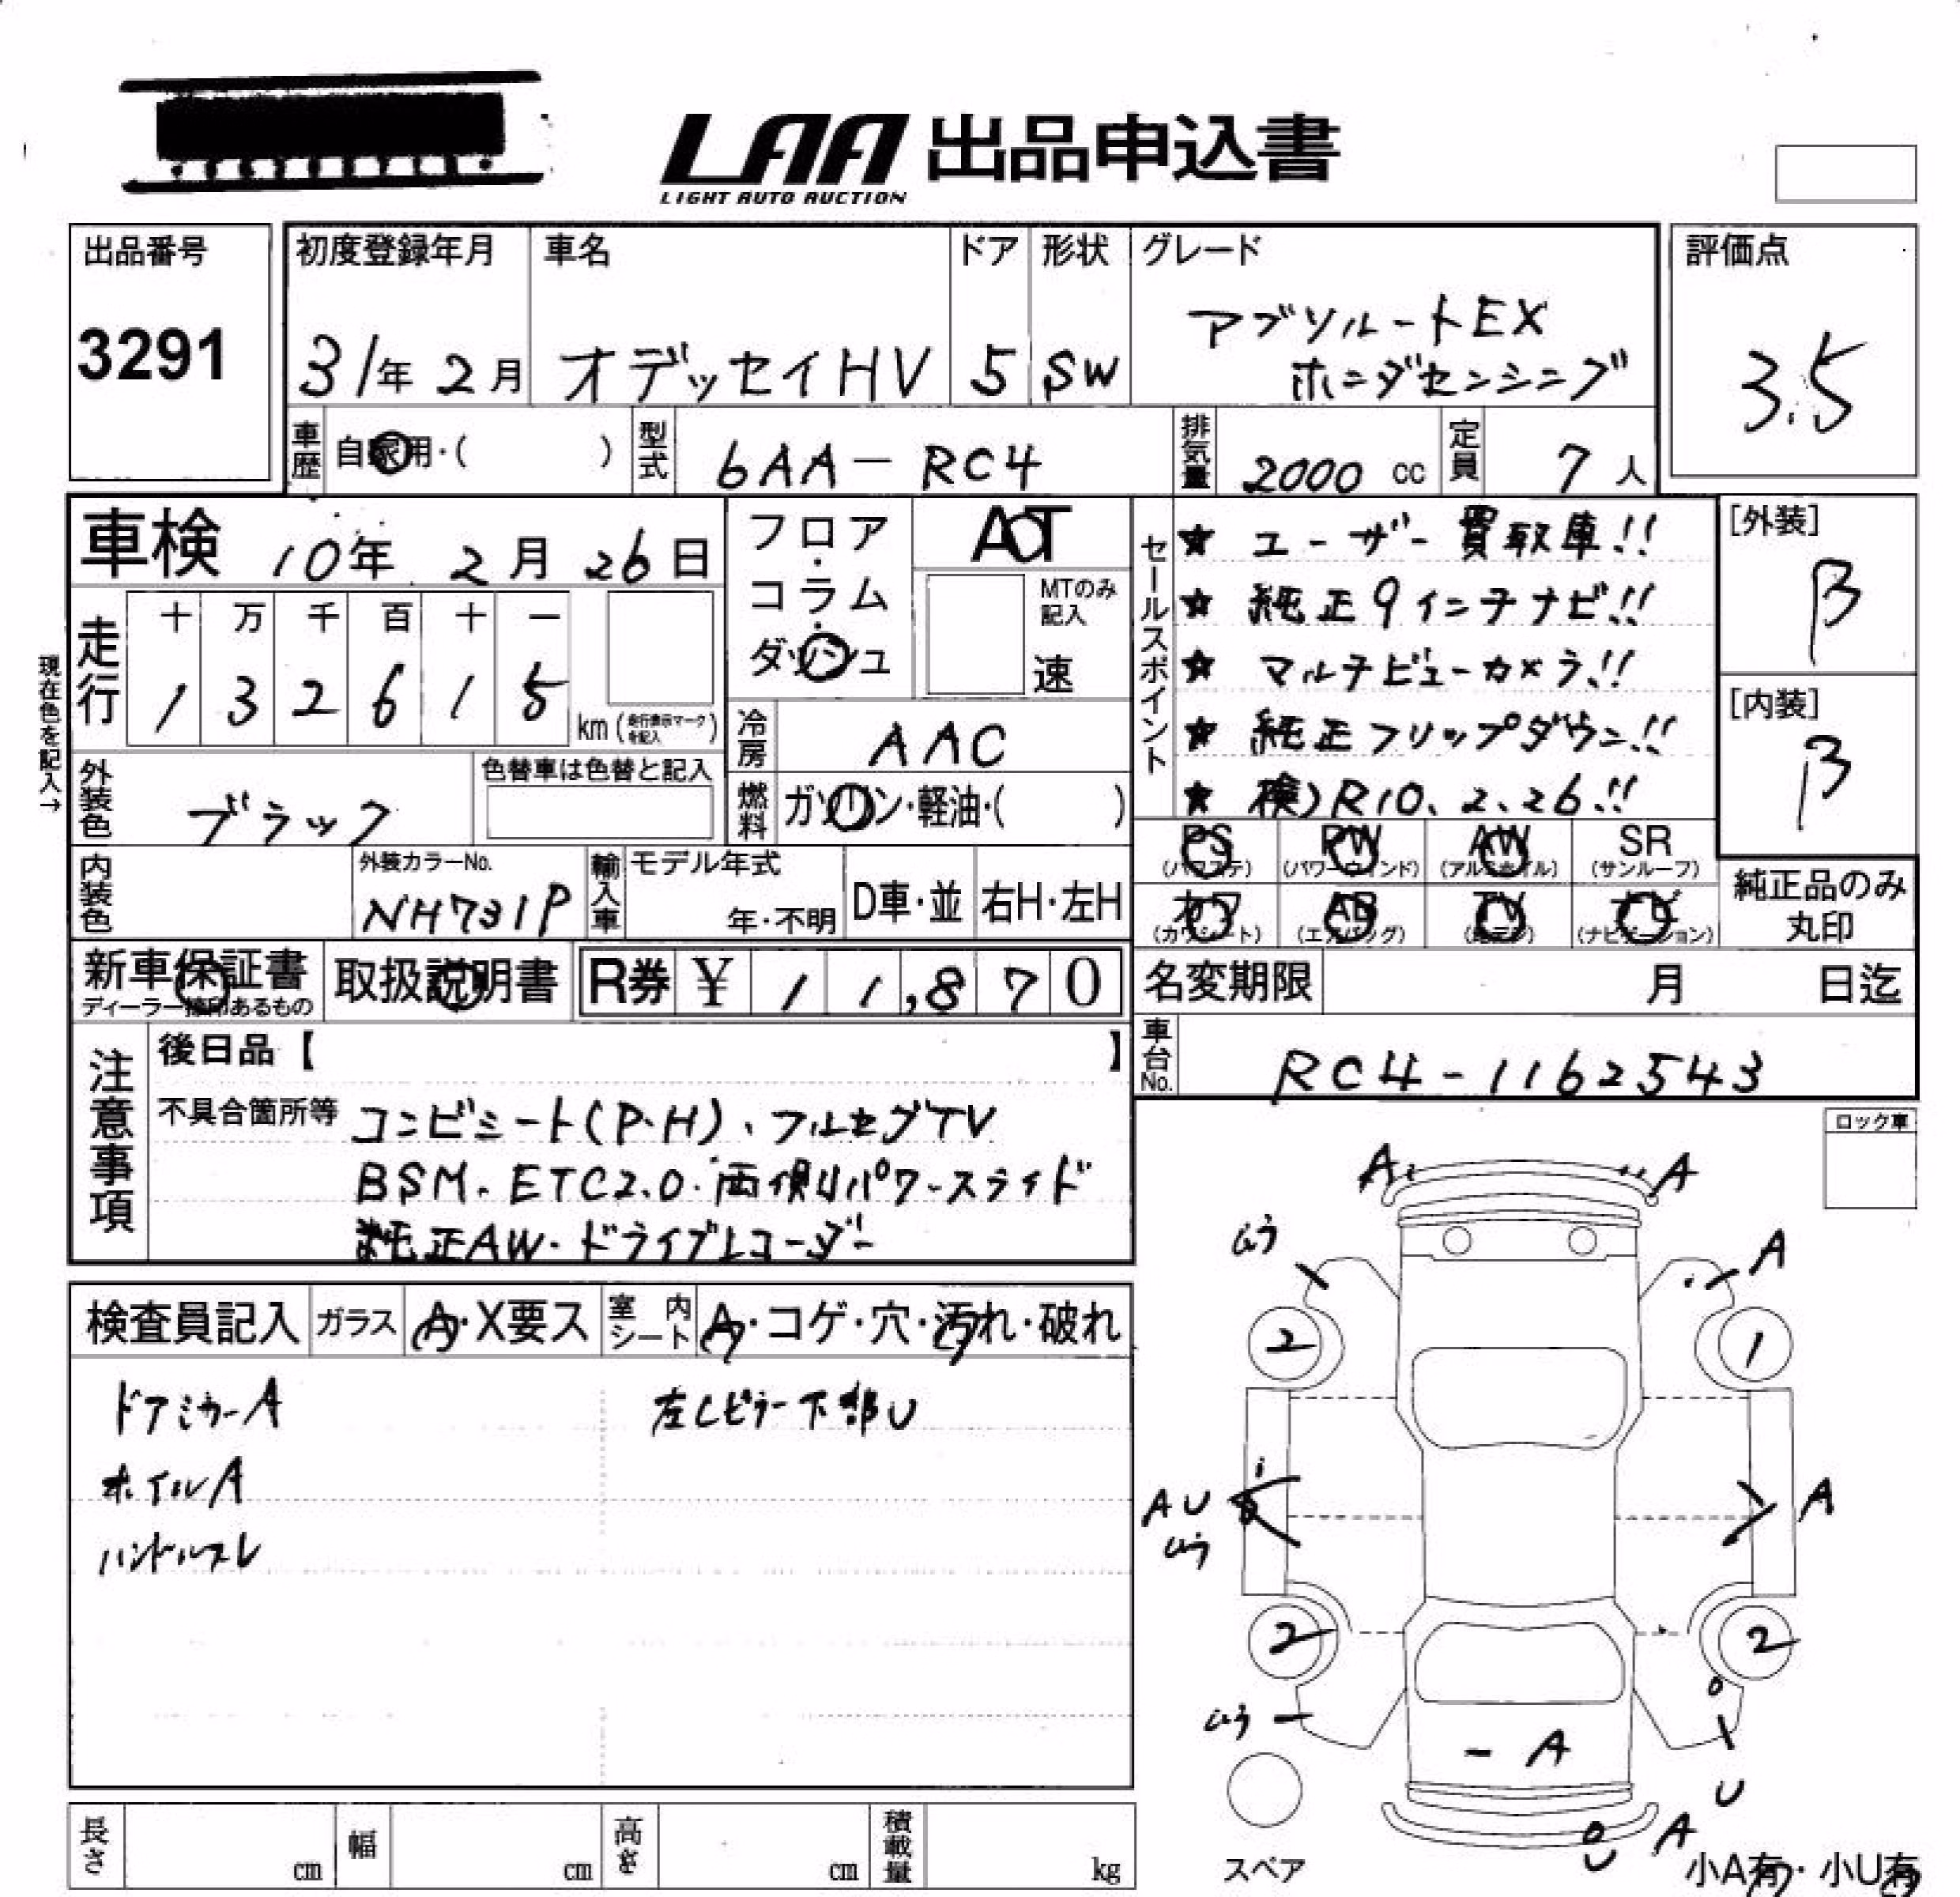 LAA 出品申込書
LIGHT AUTO AUCTION
出品番号
3291
初度登録年月
31年 2月
車名
オデッセイHV
ドア
5
形状
SW
グレード
アブソルートEX
ホンダセンシング
評価点
3.5
車歴
自家用・( )
型式
6AA-RC4
排気量
2000 cc
定員
7 人
車検 10年 2月 26日
走行
十 万 千 百 十 一
1 3 2 6 1 5
km (走行表示マークを記入)
現在色を記入→
フロア・コラム・ダッシュ
AT
MTのみ記入
速
冷房
AAC
燃料
ガソリン・軽油・( )
外装色
ブラック
色替車は色替と記入
内装色
外装カラーNo.
NH731P
輸入車
モデル年式
年・不明
D車・並
右H・左H
セールスポイント
★ ユーザー買取車!!
★ 純正9インチナビ!!
★ マルチビューカメラ!!
★ 純正フリップダウン!!
★ 検)R10.2.26!!
[外装]
B
[内装]
B
PS (パワステ)
PW (パワーウィンド)
AW (アルミホイル)
SR (サンルーフ)
カワ (カワシート)
AB (エアバッグ)
TV
ナビ (ナビゲーション)
純正品のみ丸印
新車保証書
ディーラー捺印あるもの
取扱説明書
R券 ¥ 11,870
名変期限 月 日迄
車台No.
RC4-1162543
注意事項
後日品【 】
不具合箇所等
コンビシート(P.H)、フルセグTV
BSM・ETC2.0・両側パワースライド
純正AW・ドライブレコーダー
ロック車
検査員記入
ガラス
A・X要ス
室内シート
A・コゲ・穴・汚れ・破れ
ドアミラーA
左Cピラー下部U
ホイルA
ハンドルスレ
A A
ムラ A
2 1
A U A
ムラ
2 2
ムラ
- A
U
U A
スペア
小A有・小U有
長さ cm
幅 cm
高さ cm
積載量 kg